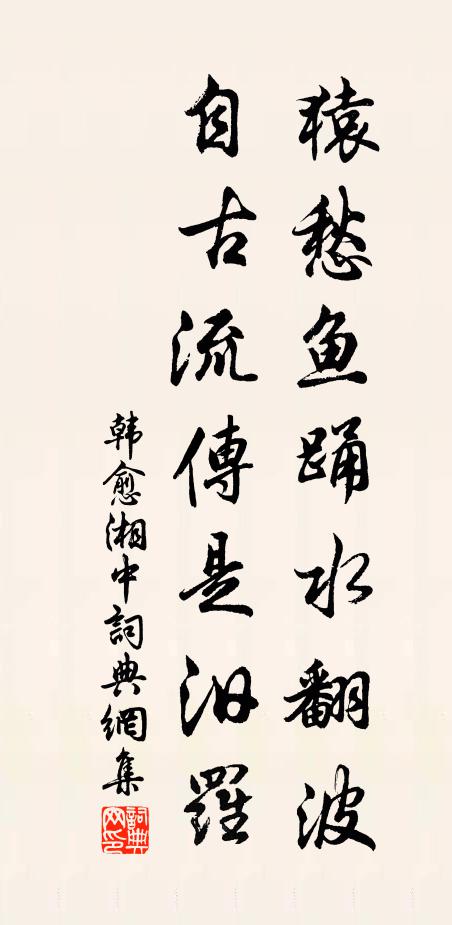 猿愁鱼踊水翻波
自古流傳是汨羅
韩愈湘中詞典網集
詞典网印